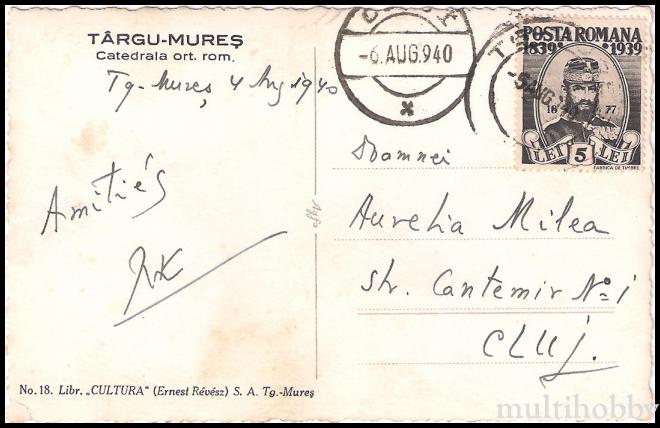 TÂRGU-MUREȘ
Catedrala ort. rom.
Tg-Mureș, 4 Aug 1940
Amitiés
No. 18. Libr. „CULTURA" (Ernest Révész) S. A. Tg.-Mureș
-6.AUG.940
POSTA ROMANA
1839 1939
18 77
LEI 5 LEI
FABRICA DE TIMBRE
Doamnei
Aurelia Milea
str. Cantemir No 1
CLUJ.
multihobby